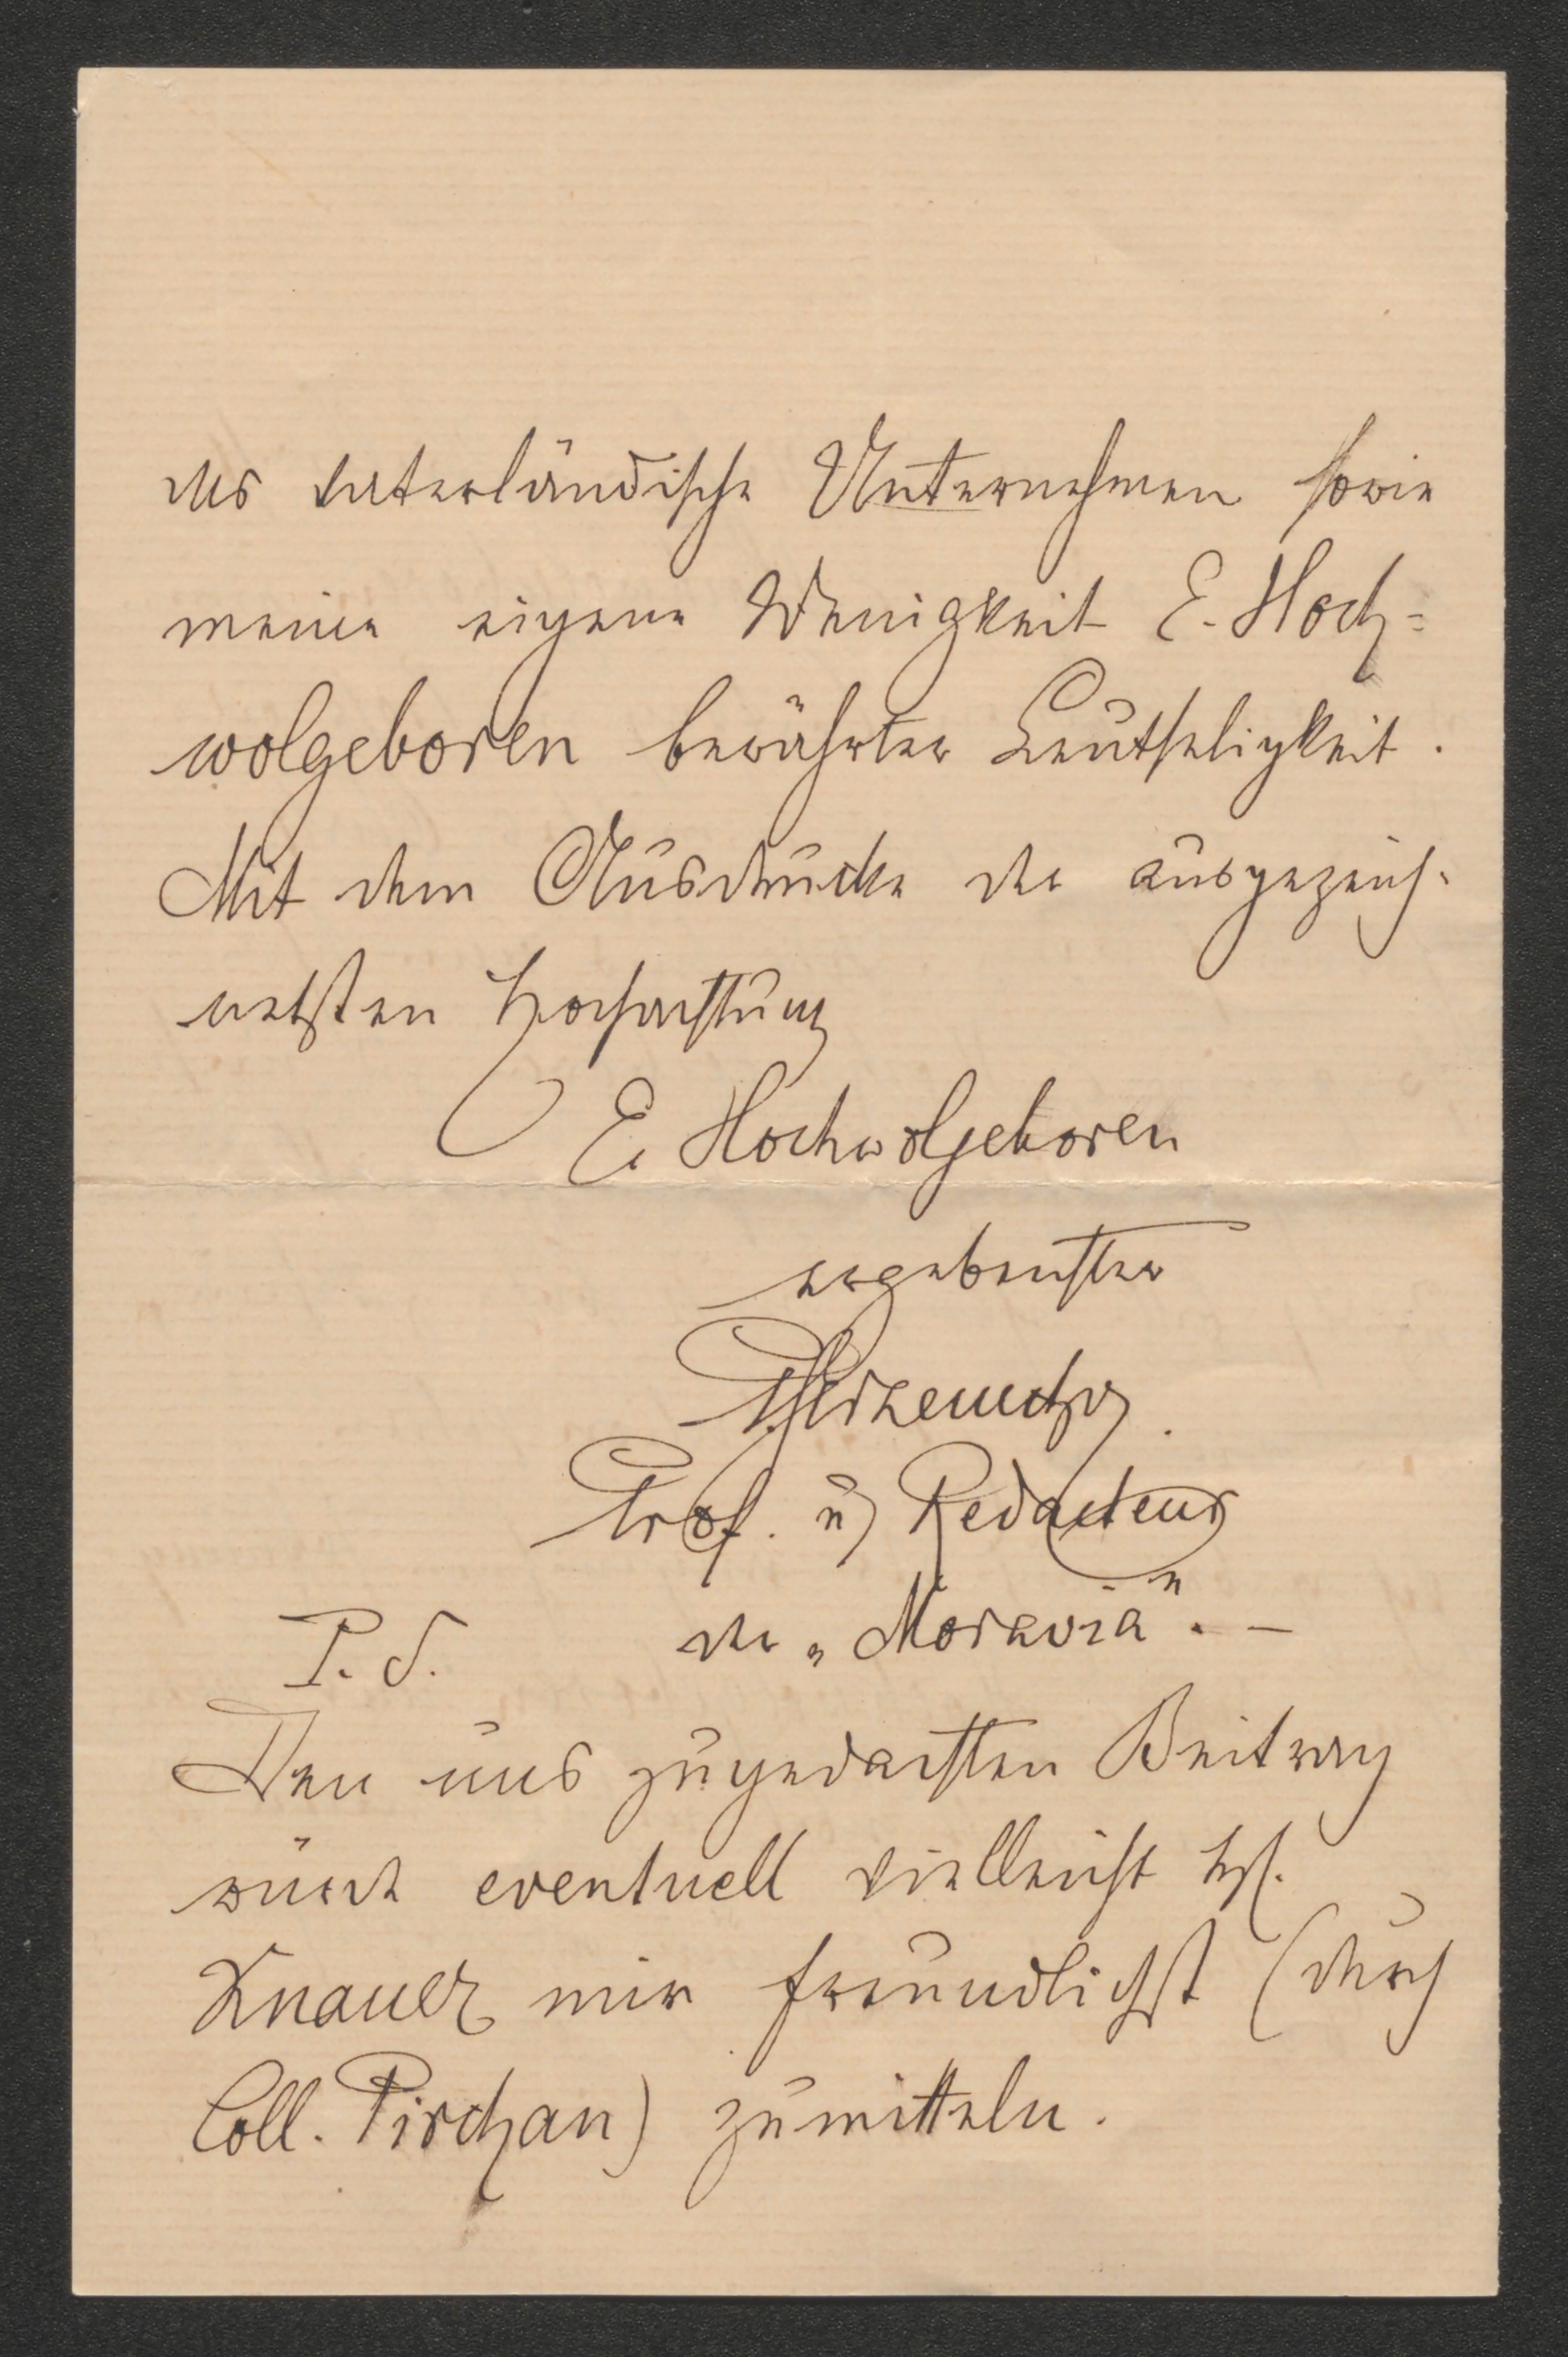 das vaterländische Unternehmen sowie
meine eigene Wenigkeit E. Hoch=
wolgeboren bewährter Leutseligkeit.
Mit dem Ausdrucke der ausgezeich-
netsten Hochachtung
E. Hochwolgeboren
ergebenster
Prof. u. Redacteur
P. S.
der „Moravia“. –
Den uns zugedachten Beitrag
würde eventuell vielleicht H.
Knauer mir freundlichst (durch
Coll. Pirchan) zumitteln.